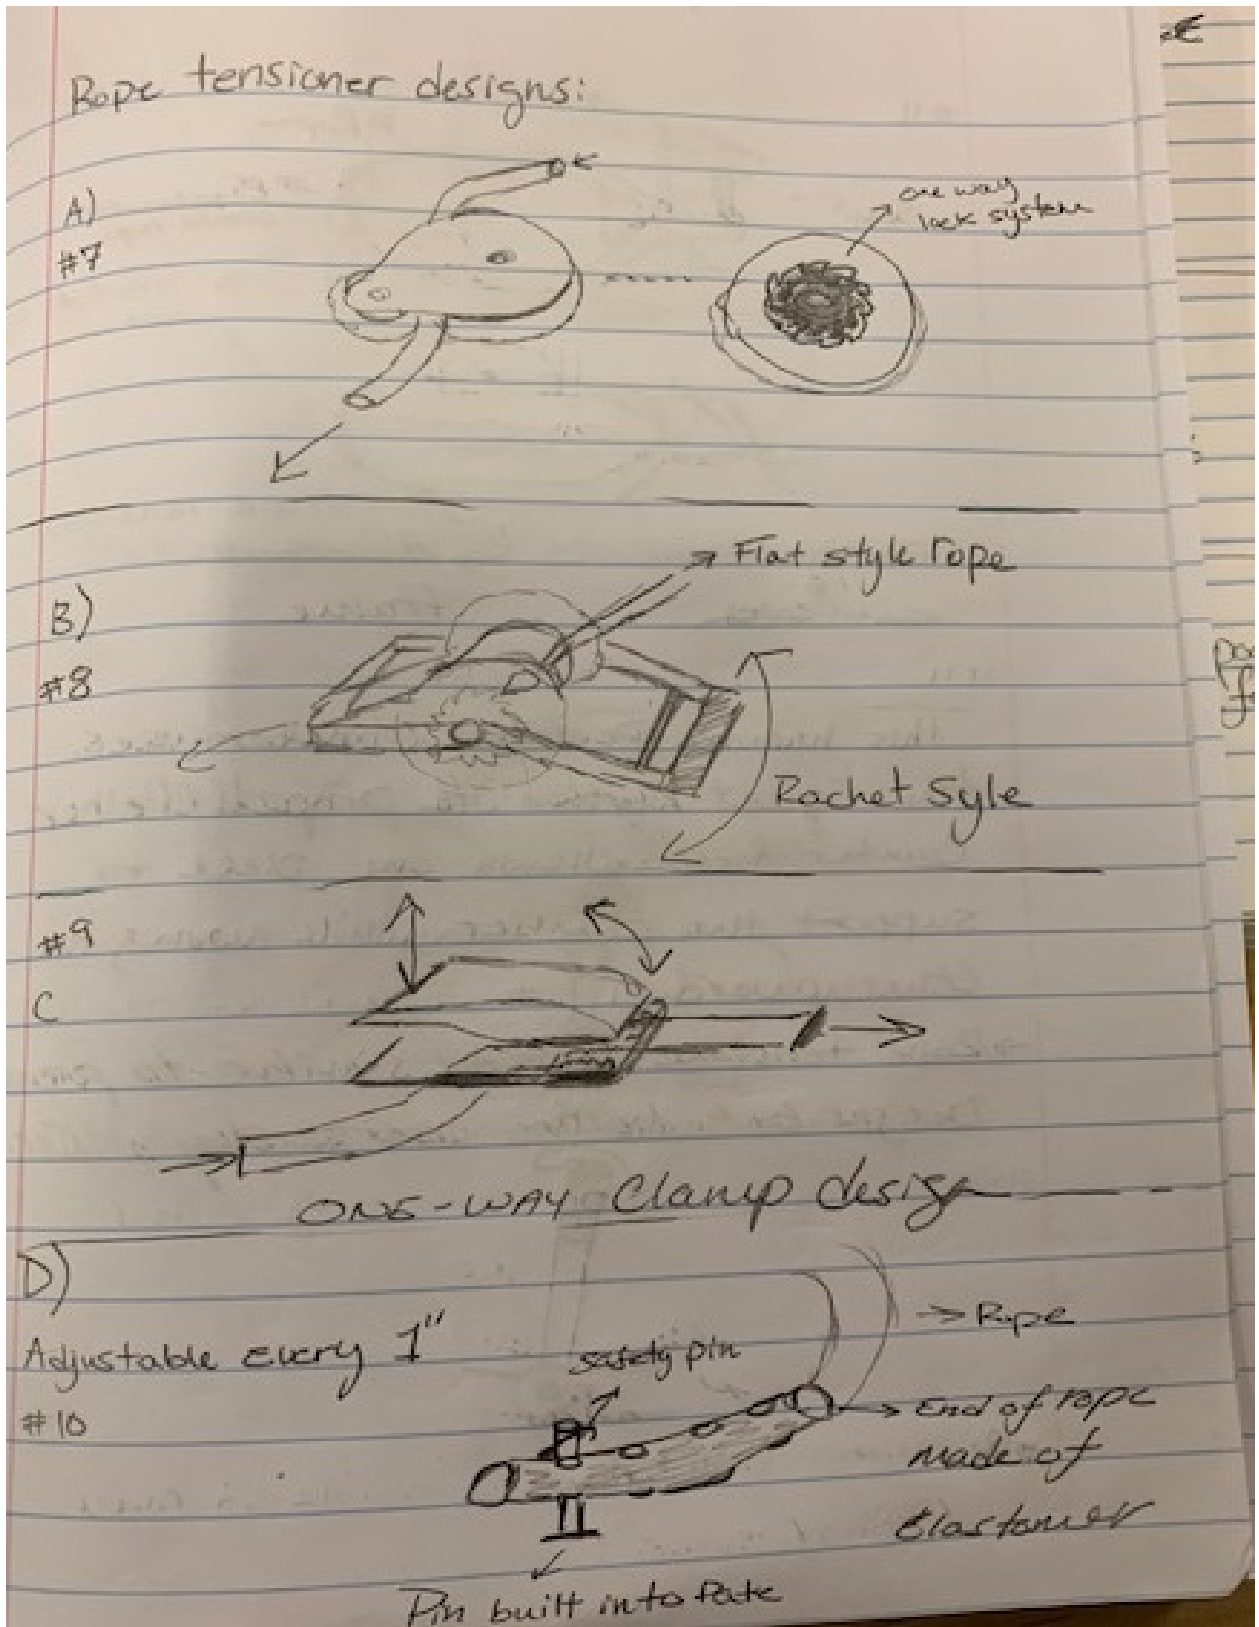 Rope tensioner designs:
A)
#7
one way
lock system
B)
#8
Flat style rope
Rachet Syle
#9
C
ONE-WAY Clamp design
D)
Adjustable every 1"
#10
safety pin
Rope
End of rope
made of
elastomer
Pin built into